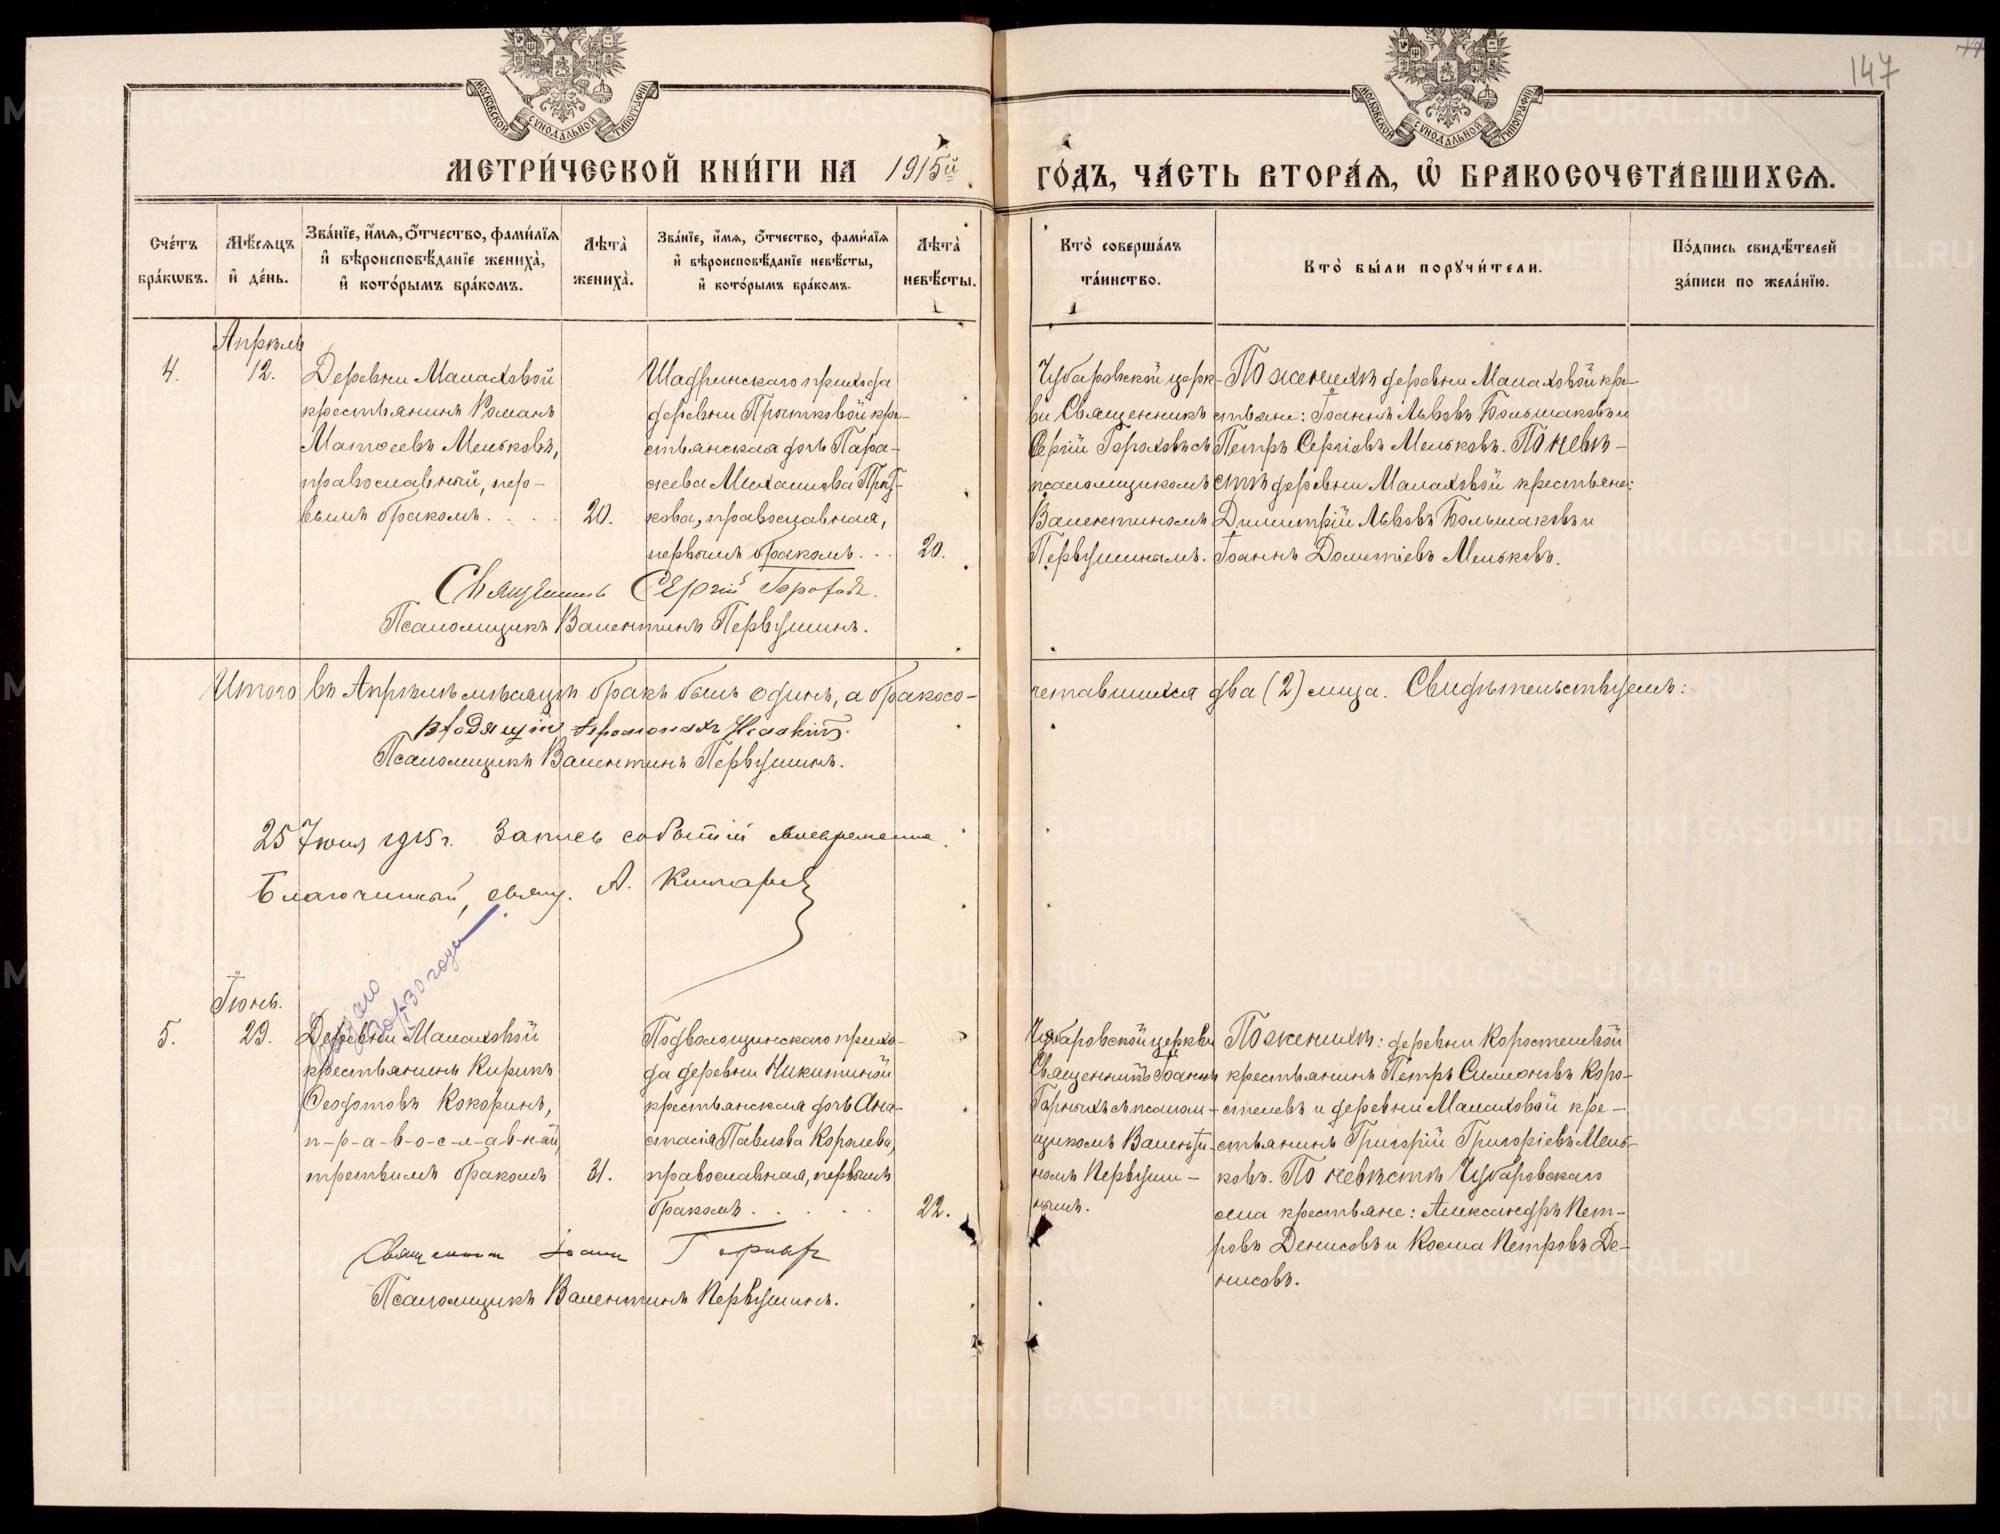 147
МОСКОВСКОЙ СУНОДАЛЬНОЙ ТИПОГРАФІИ
МОСКОВСКОЙ СУНОДАЛЬНОЙ ТИПОГРАФІИ
МЕТРИ́ЧЕСКОЙ КНИ́ГИ НА 1915й ГО́ДЪ, ЧА́СТЬ ВТОРА́Ѧ, Ѡ҆ БРАКОСОЧЕТА́ВШИХСѦ.
Сче́тъ бра́кѡвъ.
Мѣ́сѧцъ и҆ де́нь.
Зва́нїе, и҆́мѧ, ѻ҆́тчество, фами́лїѧ
и҆ вѣроисповѣ́данїе жениха̀,
и҆ кото́рымъ бра́комъ.
Лѣта̀ жениха̀.
Зва́нїе, и҆́мѧ, ѻ҆́тчество, фами́лїѧ
и҆ вѣроисповѣ́данїе невѣ́сты,
и҆ кото́рымъ бра́комъ.
Лѣта̀ невѣ́сты.
Кто̀ соверша́лъ та́инство.
Кто̀ бы́ли порꙋчи́тели.
По́дпись свидѣ́телей
за́писи по жела́нїю.
Апрѣль
4.
12.
Деревни Малаховой
крестьянинъ Романъ
Матѳеевъ Мельковъ,
православный, пер-
вымъ бракомъ. . . .
20.
Шадринскаго прихода
деревни Прытковой кре-
стьянская дочь Пара-
скева Михаилова Прыт-
кова, православная,
первымъ бракомъ. . .
20.
Чубаровской церк-
ви Священникъ
Сергій Гороховъ съ
псаломщикомъ
Валентиномъ
Первушинымъ.
По женихѣ деревни Малаховой кре-
стьяне: Іоаннъ Львовъ Большаковъ и
Петръ Сергіевъ Мельковъ. По невѣ-
стѣ деревни Малаховой крестьяне:
Димитрій Львовъ Большаковъ и
Іоаннъ Дометіевъ Мельковъ.
Священникъ Сергій Гороховъ.
Псаломщикъ Валентинъ Первушинъ.
Итого въ Апрѣлѣ мѣсяцѣ бракъ былъ одинъ, а бракосо-
четавшихся два (2) лица. Свидѣтельствуемъ:
Іеромонахъ
Псаломщикъ Валентинъ Первушинъ.
25 Іюня 1915 г. Запись событій своевременна.
Благочинный, свящ. А.
30 года
Іюнь.
5.
29.
Деревни Малаховой
крестьянинъ Кирикъ
Ѳеодотовъ Кокоринъ,
п-р-а-в-о-с-л-а-в-н-ый,
третьимъ бракомъ
31.
Подволошинскаго прихо-
да деревни Никитиной
крестьянская дочь Ана-
стасія Павлова Королева,
православная, первымъ
бракомъ. . . . .
22.
Чубаровской церкви
Священникъ Іоаннъ
Горныхъ съ псалом-
щикомъ Валенти-
номъ Первуши-
нымъ.
По женихѣ: деревни Коростелевой
крестьянинъ Петръ Симеоновъ Коро-
стелевъ и деревни Малаховой кре-
стьянинъ Григорій Григоріевъ Мель-
ковъ. По невѣстѣ Чубаровскаго
села крестьяне: Александръ Пет-
ровъ Денисовъ и Косма Петровъ Де-
нисовъ.
Священникъ Іоаннъ Горныхъ
Псаломщикъ Валентинъ Первушинъ.
METRIKI.GASO-URAL.RU